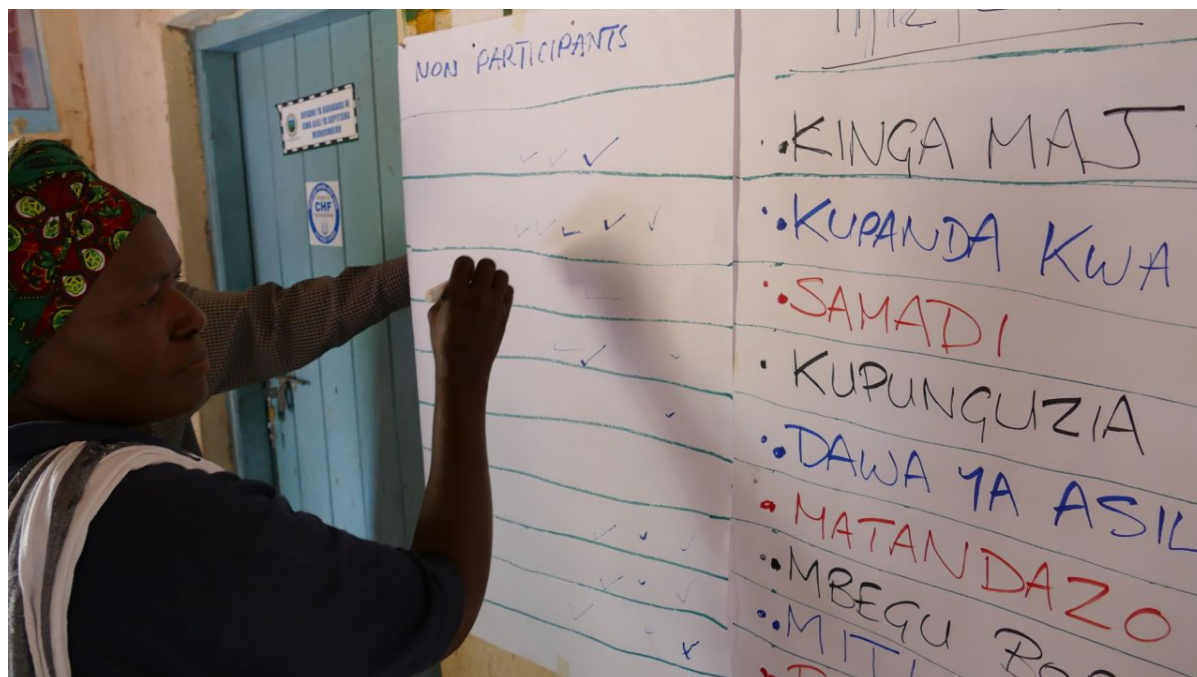 NON PARTICIPANTS
KINGA MAJ
KUPANDA KWA
SAMADI
KUPUNGUZIA
DAWA YA ASIL
MATANDAZO
MBEGU BO
MITI
CHF